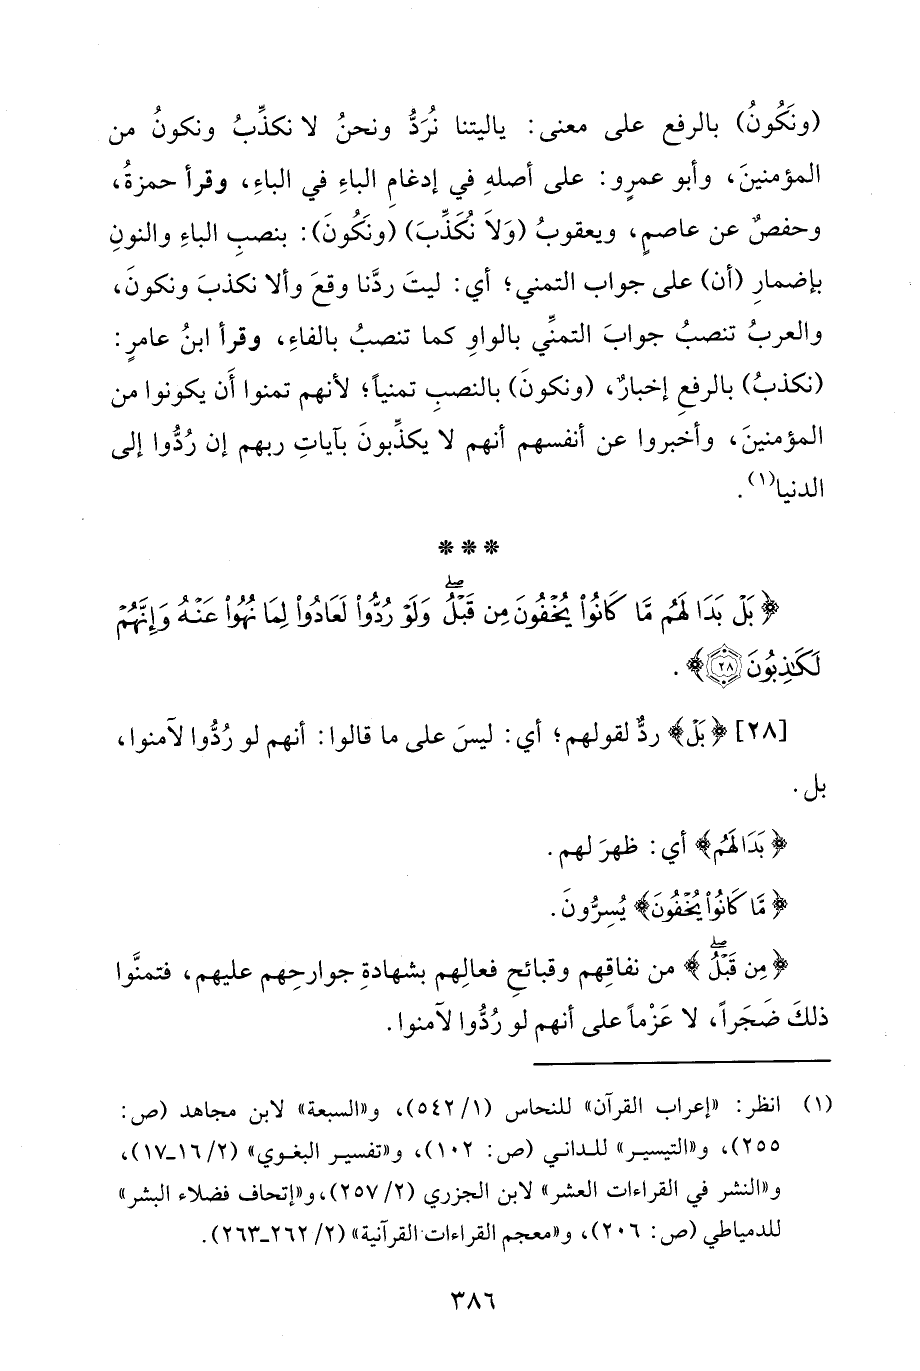 (ونَكُونُ) بالرفع على معنى: ياليتنا نُرَدُّ ونحنُ لا نكذِّبُ ونكونُ من
المؤمنينَ، وأبو عمرٍو: على أصلهِ في إدغامِ الباءِ في الباءِ، وقرأ حمزةُ،
وحفصٌ عن عاصمٍ، ويعقوبُ (وَلاَ نُكَذِّبَ) (ونَكُونَ): بنصبِ الباءِ والنونِ
بإضمارِ (أن) على جواب التمني؛ أي: ليتَ ردَّنا وقعَ وألا نكذبَ ونكونَ،
والعربُ تنصبُ جوابَ التمنِّي بالواوِ كما تنصبُ بالفاءِ، وقرأ ابنُ عامرٍ:
(نكذبُ) بالرفعِ إخبارٌ، (ونكونَ) بالنصبِ تمنياً؛ لأنهم تمنوا أَن يكونوا من
المؤمنينَ، وأخبروا عن أنفسهم أنهم لا يكذِّبونَ بآياتِ ربهم إن رُدُّوا إلى
الدنيا(١).
***
﴿بَلۡ بَدَا لَهُم مَّا كَانُواْ يُخۡفُونَ مِن قَبۡلُۖ وَلَوۡ رُدُّواْ لَعَادُواْ لِمَا نُهُواْ عَنۡهُ وَإِنَّهُمۡ
لَكَٰذِبُونَ ٢٨﴾.
[٢٨] ﴿بَلۡ﴾ ردٌّ لقولهم؛ أي: ليسَ على ما قالوا: أنهم لو رُدُّوا لآمنوا،
بل.
﴿بَدَا لَهُم﴾ أي: ظهرَ لهم.
﴿مَّا كَانُواْ يُخۡفُونَ﴾ يُسِرُّونَ.
﴿مِن قَبۡلُۖ﴾ من نفاقِهم وقبائحِ فعالِهم بشهادةِ جوارحِهم عليهم، فتمنَّوا
ذلكَ ضَجَراً، لا عَزْماً على أنهم لو رُدُّوا لآمنوا.
(١) انظر: «إعراب القرآن» للنحاس (١/ ٥٤٢)، و«السبعة» لابن مجاهد (ص:
٢٥٥)، و«التيسير» للداني (ص: ١٠٢)، و«تفسير البغوي» (٢/ ١٦ـ١٧)،
و«النشر في القراءات العشر» لابن الجزري (٢/ ٢٥٧)، و«إتحاف فضلاء البشر»
للدمياطي (ص: ٢٠٦)، و«معجم القراءات القرآنية» (٢/ ٢٦٢ـ٢٦٣).
٣٨٦